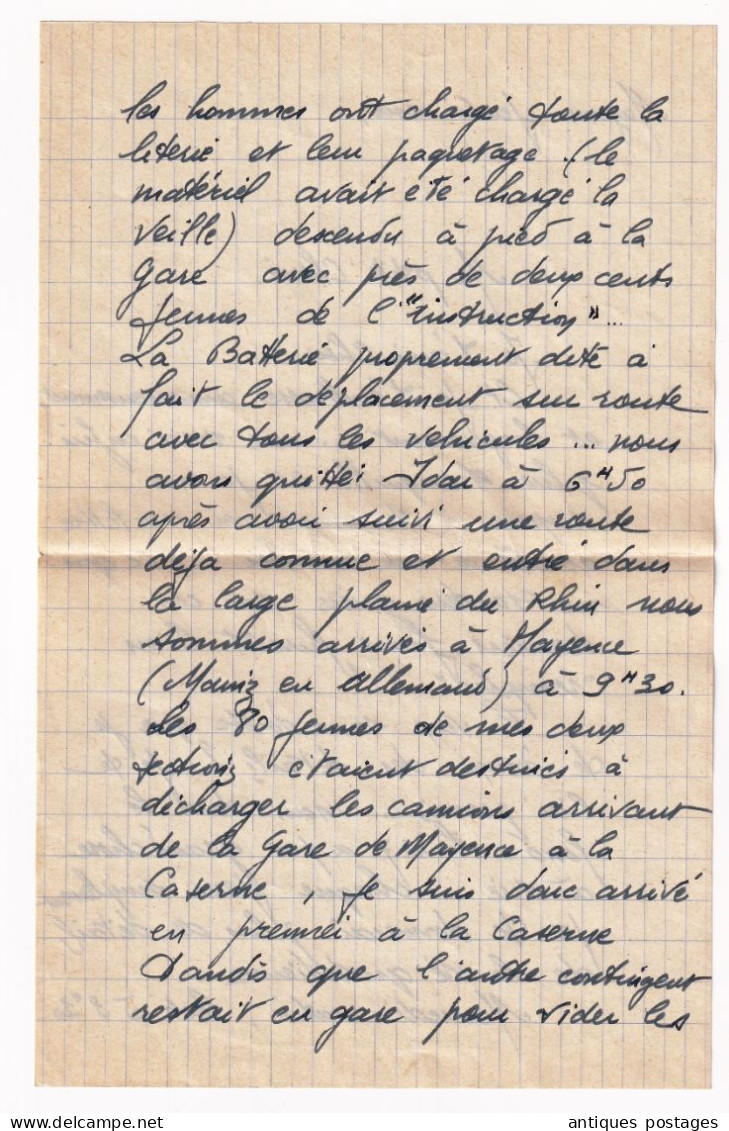 les hommes ont chargé toute la
literie et leur paquetage. (le
matériel avait été chargé la
veille) descendu à pied à la
Gare avec près de deux cents
jeunes de l'"instruction"...
La Batterie proprement dite a
fait le déplacement sur route
avec tous les véhicules... nous
avons quitté Idar à 6H50
après avoir suivi une route
déja connue et entré dans
la large plaine du Rhin nous
sommes arrivés à Mayence
(Mainz en allemand) à 9H30.
Les 80 jeunes de mes deux
sections étaient destinés à
décharger les camions arrivant
de la Gare de Mayence à la
Caserne, je suis donc arrivé
en premier à la Caserne
tandis que l'autre contingent
restait en gare pour vider les
antiques postages
www.delcampe.net